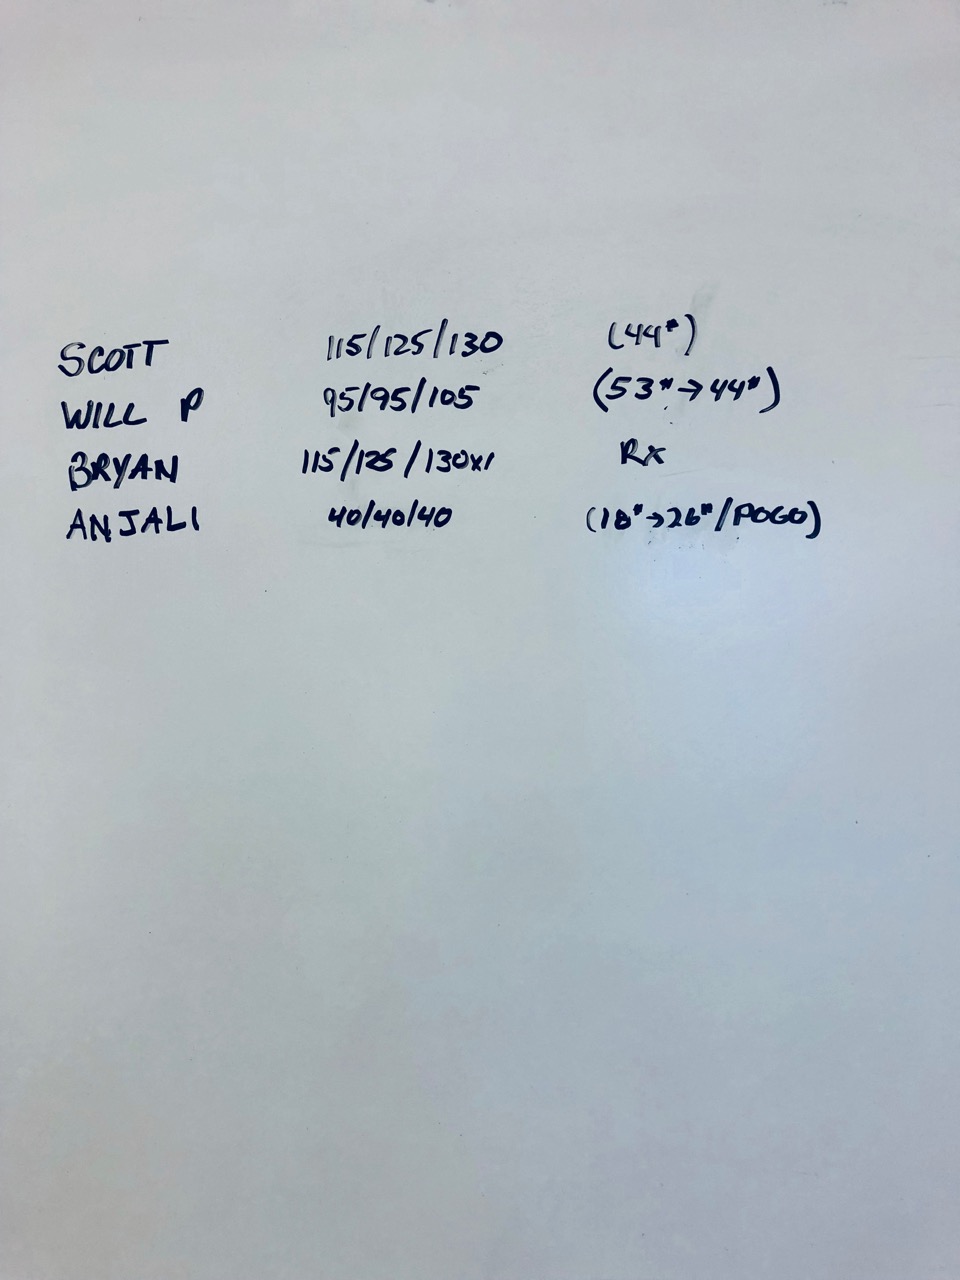 SCOTT 115/125/130 (44#)
WILL P 95/95/105 (53#→44#)
BRYAN 115/125/130x1 Rx
ANJALI 40/40/40 (18#→26#/POGO)